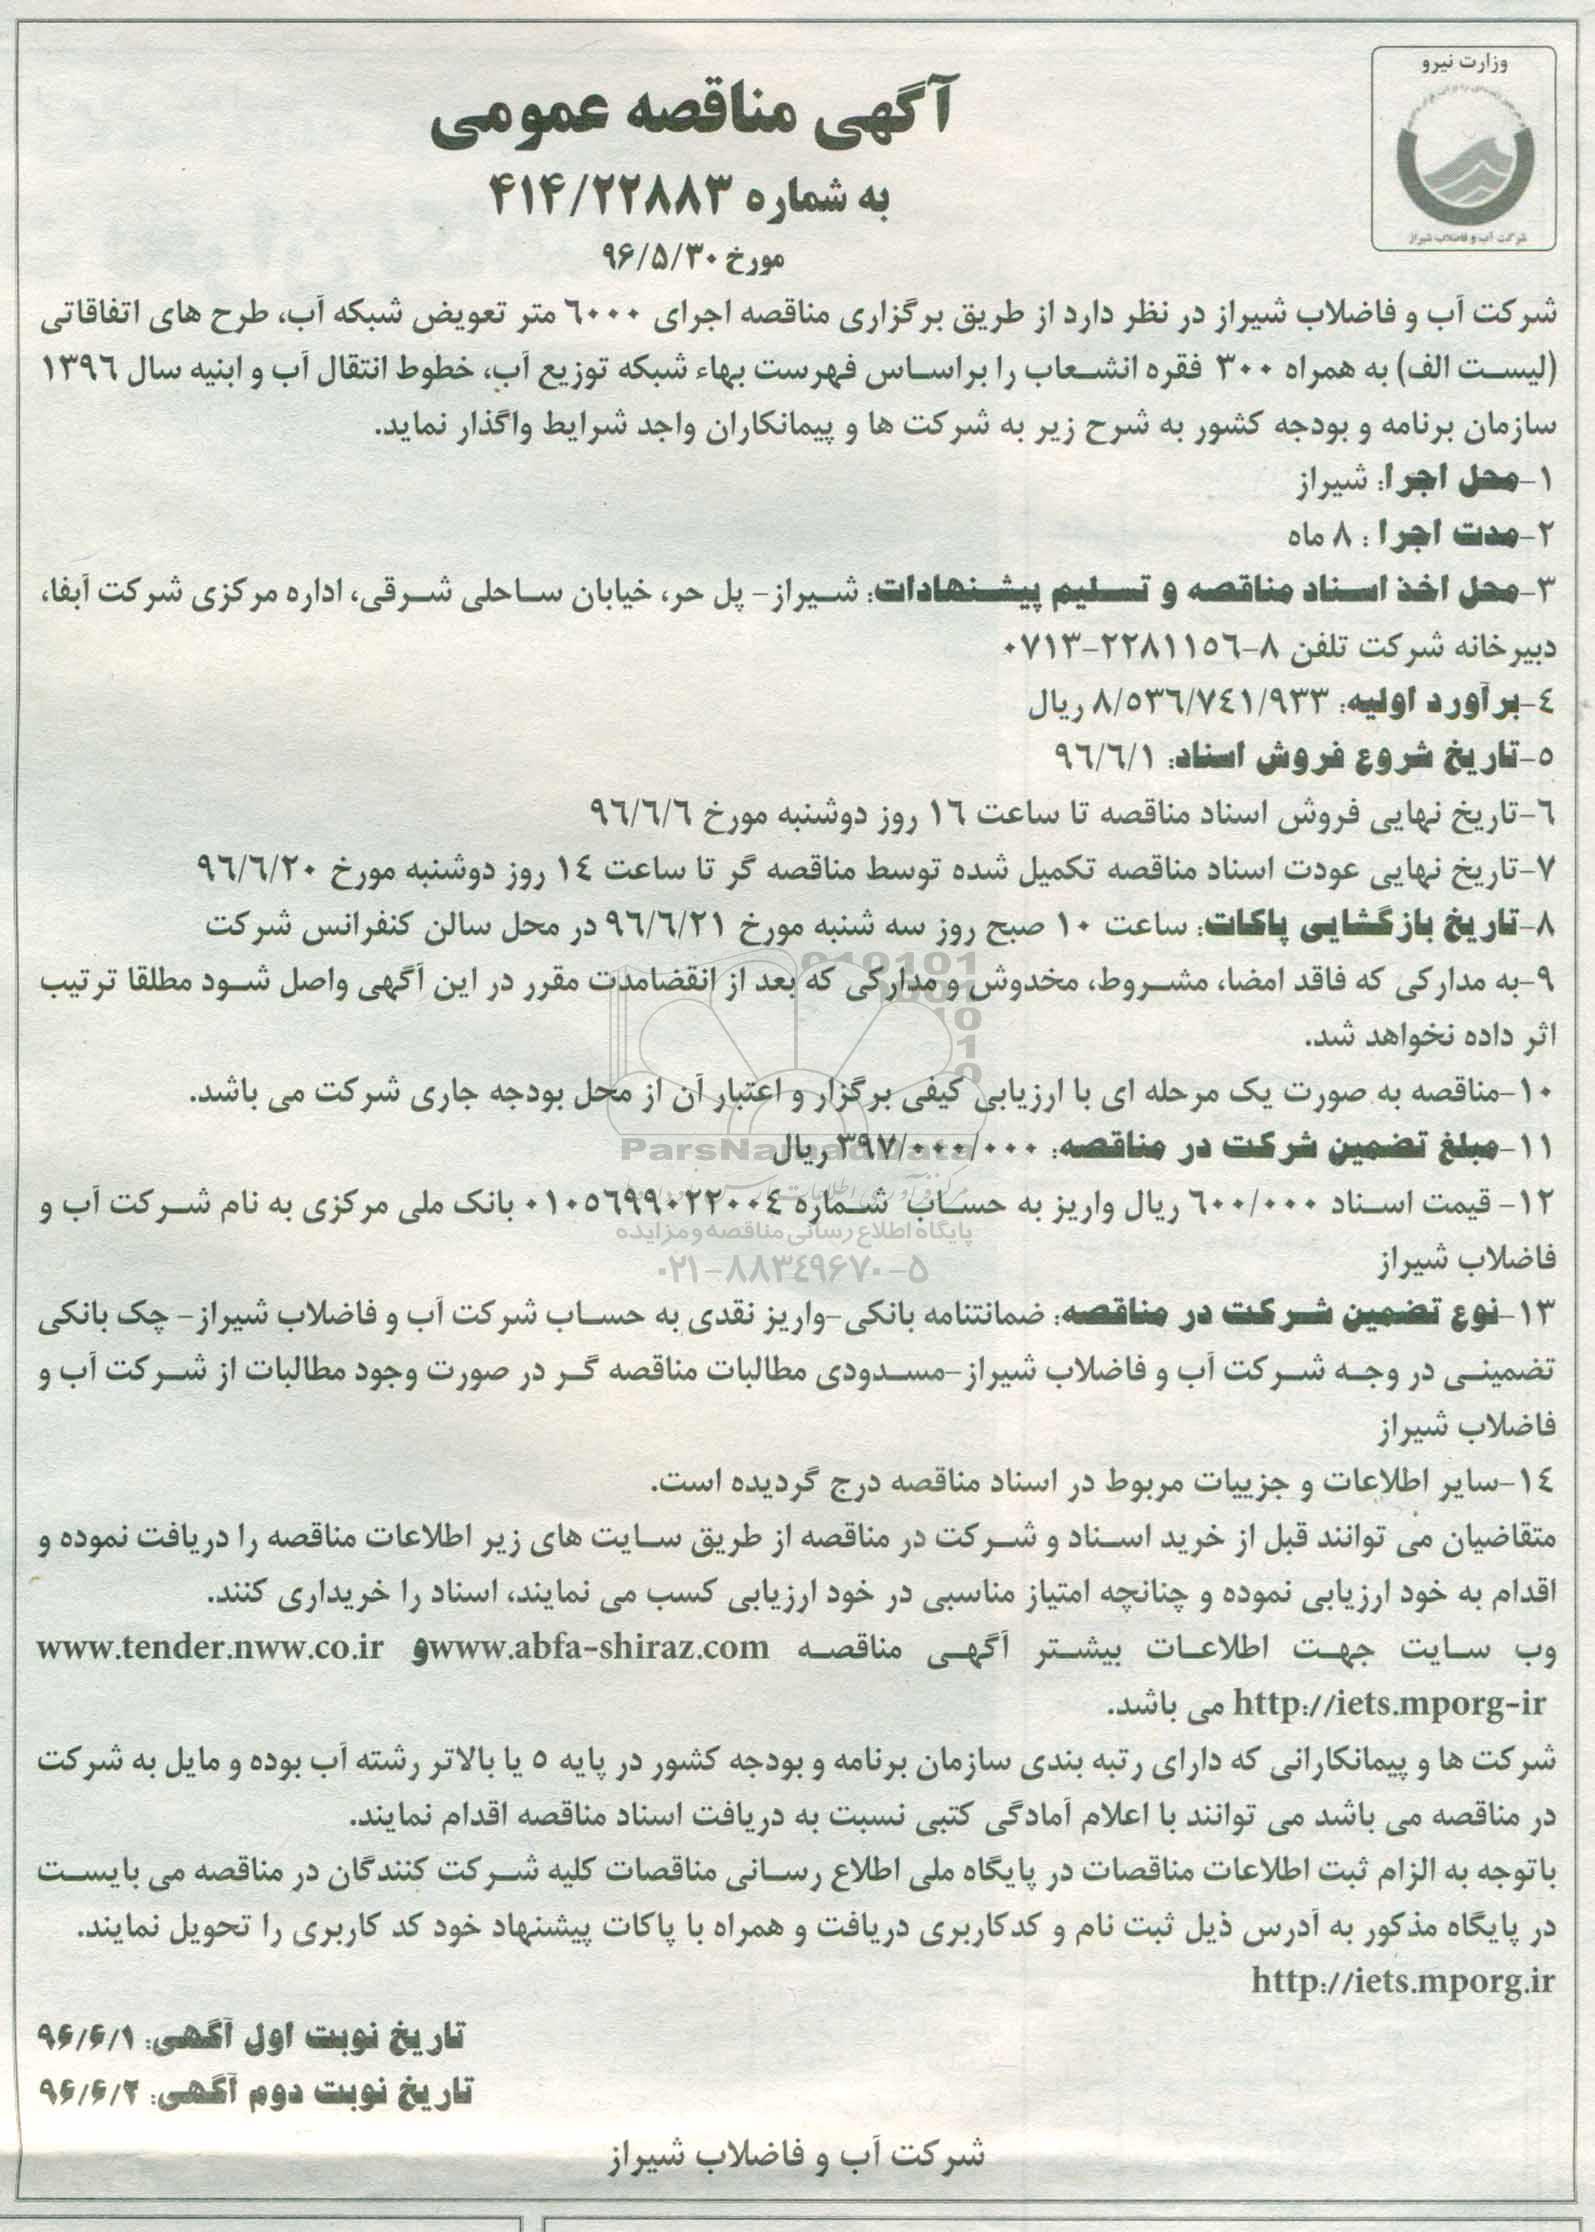 وزارت نیرو
شرکت آب و فاضلاب شیراز
آگهی مناقصه عمومی
به شماره ۴۱۴/۲۲۸۸۳
مورخ ۹۶/۵/۳۰
شرکت آب و فاضلاب شیراز در نظر دارد از طریق برگزاری مناقصه اجرای ۶۰۰۰ متر تعویض شبکه آب، طرح های اتفاقاتی
(لیست الف) به همراه ۳۰۰ فقره انشعاب را براساس فهرست بهاء شبکه توزیع آب، خطوط انتقال آب و ابنیه سال ۱۳۹۶
سازمان برنامه و بودجه کشور به شرح زیر به شرکت ها و پیمانکاران واجد شرایط واگذار نماید.
۱-محل اجرا: شیراز
۲-مدت اجرا : ۸ ماه
۳-محل اخذ اسناد مناقصه و تسلیم پیشنهادات: شیراز- پل حر، خیابان ساحلی شرقی، اداره مرکزی شرکت آبفا،
دبیرخانه شرکت تلفن ۸-۲۲۸۱۱۵۶-۰۷۱۳
۴-برآورد اولیه: ۸/۵۳۶/۷۴۱/۹۳۳ ریال
۵-تاریخ شروع فروش اسناد: ۹۶/۶/۱
۶-تاریخ نهایی فروش اسناد مناقصه تا ساعت ۱۶ روز دوشنبه مورخ ۹۶/۶/۶
۷-تاریخ نهایی عودت اسناد مناقصه تکمیل شده توسط مناقصه گر تا ساعت ۱۴ روز دوشنبه مورخ ۹۶/۶/۲۰
۸-تاریخ بازگشایی پاکات: ساعت ۱۰ صبح روز سه شنبه مورخ ۹۶/۶/۲۱ در محل سالن کنفرانس شرکت
۹-به مدارکی که فاقد امضا، مشروط، مخدوش و مدارکی که بعد از انقضامدت مقرر در این آگهی واصل شود مطلقا ترتیب
اثر داده نخواهد شد.
۱۰-مناقصه به صورت یک مرحله ای با ارزیابی کیفی برگزار و اعتبار آن از محل بودجه جاری شرکت می باشد.
۱۱-مبلغ تضمین شرکت در مناقصه: ۳۹۷/۰۰۰/۰۰۰ ریال
ParsNamadData
۱۲- قیمت اسناد ۶۰۰/۰۰۰ ریال واریز به حساب شماره ۰۱۰۵۶۹۹۰۲۲۰۰۴ بانک ملی مرکزی به نام شرکت آب و
پایگاه اطلاع رسانی مناقصه و مزایده
فاضلاب شیراز
۰۲۱-۸۸۳۴۹۶۷۰-۵
۱۳-نوع تضمین شرکت در مناقصه: ضمانتنامه بانکی-واریز نقدی به حساب شرکت آب و فاضلاب شیراز- چک بانکی
تضمینی در وجه شرکت آب و فاضلاب شیراز-مسدودی مطالبات مناقصه گر در صورت وجود مطالبات از شرکت آب و
فاضلاب شیراز
۱۴-سایر اطلاعات و جزییات مربوط در اسناد مناقصه درج گردیده است.
متقاضیان می توانند قبل از خرید اسناد و شرکت در مناقصه از طریق سایت های زیر اطلاعات مناقصه را دریافت نموده و
اقدام به خود ارزیابی نموده و چنانچه امتیاز مناسبی در خود ارزیابی کسب می نمایند، اسناد را خریداری کنند.
وب سایت جهت اطلاعات بیشتر آگهی مناقصه www.abfa-shiraz.com و www.tender.nww.co.ir
http://iets.mporg-ir می باشد.
شرکت ها و پیمانکارانی که دارای رتبه بندی سازمان برنامه و بودجه کشور در پایه ۵ یا بالاتر رشته آب بوده و مایل به شرکت
در مناقصه می باشد می توانند با اعلام آمادگی کتبی نسبت به دریافت اسناد مناقصه اقدام نمایند.
باتوجه به الزام ثبت اطلاعات مناقصات در پایگاه ملی اطلاع رسانی مناقصات کلیه شرکت کنندگان در مناقصه می بایست
در پایگاه مذکور به آدرس ذیل ثبت نام و کدکاربری دریافت و همراه با پاکات پیشنهاد خود کد کاربری را تحویل نمایند.
http://iets.mporg.ir
تاریخ نوبت اول آگهی: ۹۶/۶/۱
تاریخ نوبت دوم آگهی: ۹۶/۶/۲
شرکت آب و فاضلاب شیراز